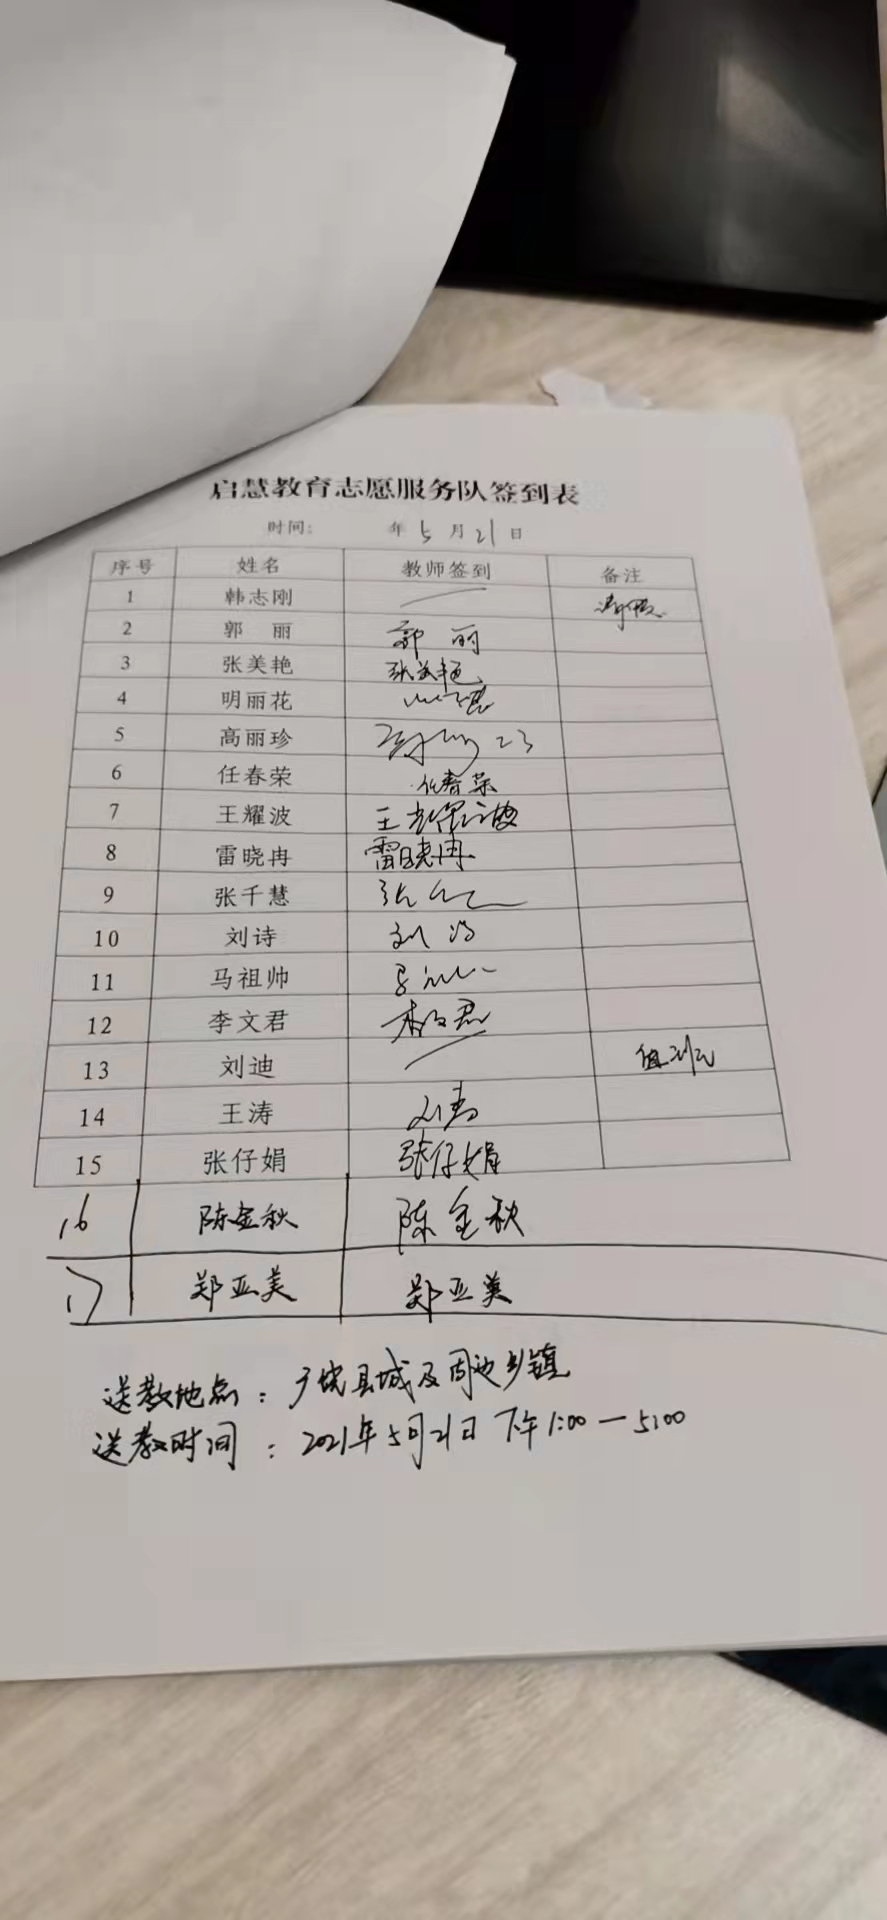 启慧教育志愿服务队签到表
时间: 年 5 月 21 日
序号 姓名 教师签到 备注
1 韩志刚 请假
2 郭丽 郭丽
3 张美艳 张美艳
4 明丽花
5 高丽珍
6 任春荣 任春荣
7 王耀波 王耀波
8 雷晓冉 雷晓冉
9 张千慧
10 刘诗 刘诗
11 马祖帅
12 李文君 李文君
13 刘迪
14 王涛 王涛
15 张仔娟 张仔娟
16 陈金秋 陈金秋
17 郑亚美 郑亚美
送教地点: 县城及周边乡镇
送教时间: 2021年5月21日 下午1:00—5:00